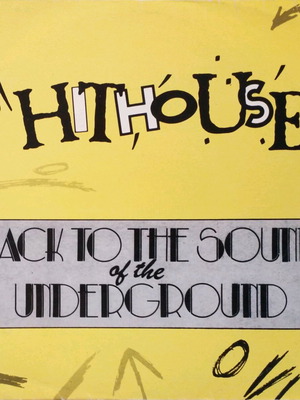 HITHOUSE
ACK TO THE SOUN
of the
UNDERGROUND